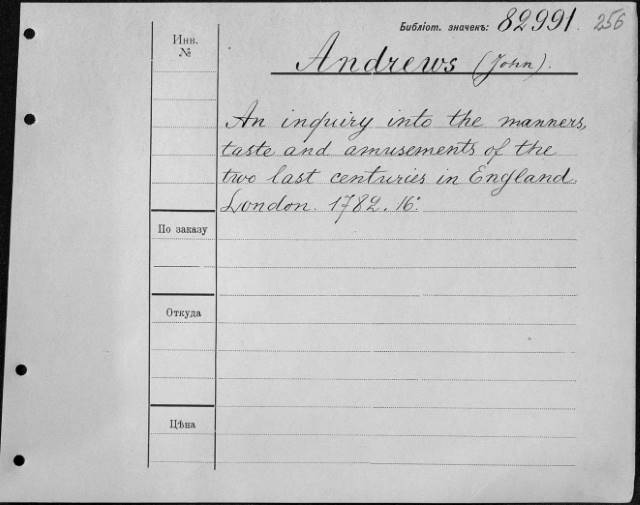 Библіот. значекъ: 82991. 256
Инв.
№
Andrews (John).
An inquiry into the manners,
taste and amusements of the
two last centuries in England.
London. 1782. 16°.
По заказу
Откуда
Цѣна